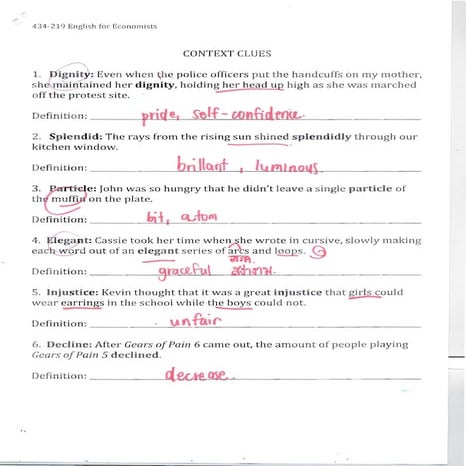 434-219 English for Economists
CONTEXT CLUES
1. Dignity: Even when the police officers put the handcuffs on my mother,
she maintained her dignity, holding her head up high as she was marched
off the protest site.
Definition: pride, self-confidence.
2. Splendid: The rays from the rising sun shined splendidly through our
kitchen window.
Definition: brillant, luminous
3. Particle: John was so hungry that he didn't leave a single particle of
the muffin on the plate.
Definition: bit, atom
4. Elegant: Cassie took her time when she wrote in cursive, slowly making
each word out of an elegant series of arcs and loops.
Definition: graceful
5. Injustice: Kevin thought that it was a great injustice that girls could
wear earrings in the school while the boys could not.
Definition: unfair
6. Decline: After Gears of Pain 6 came out, the amount of people playing
Gears of Pain 5 declined.
Definition: decrease.